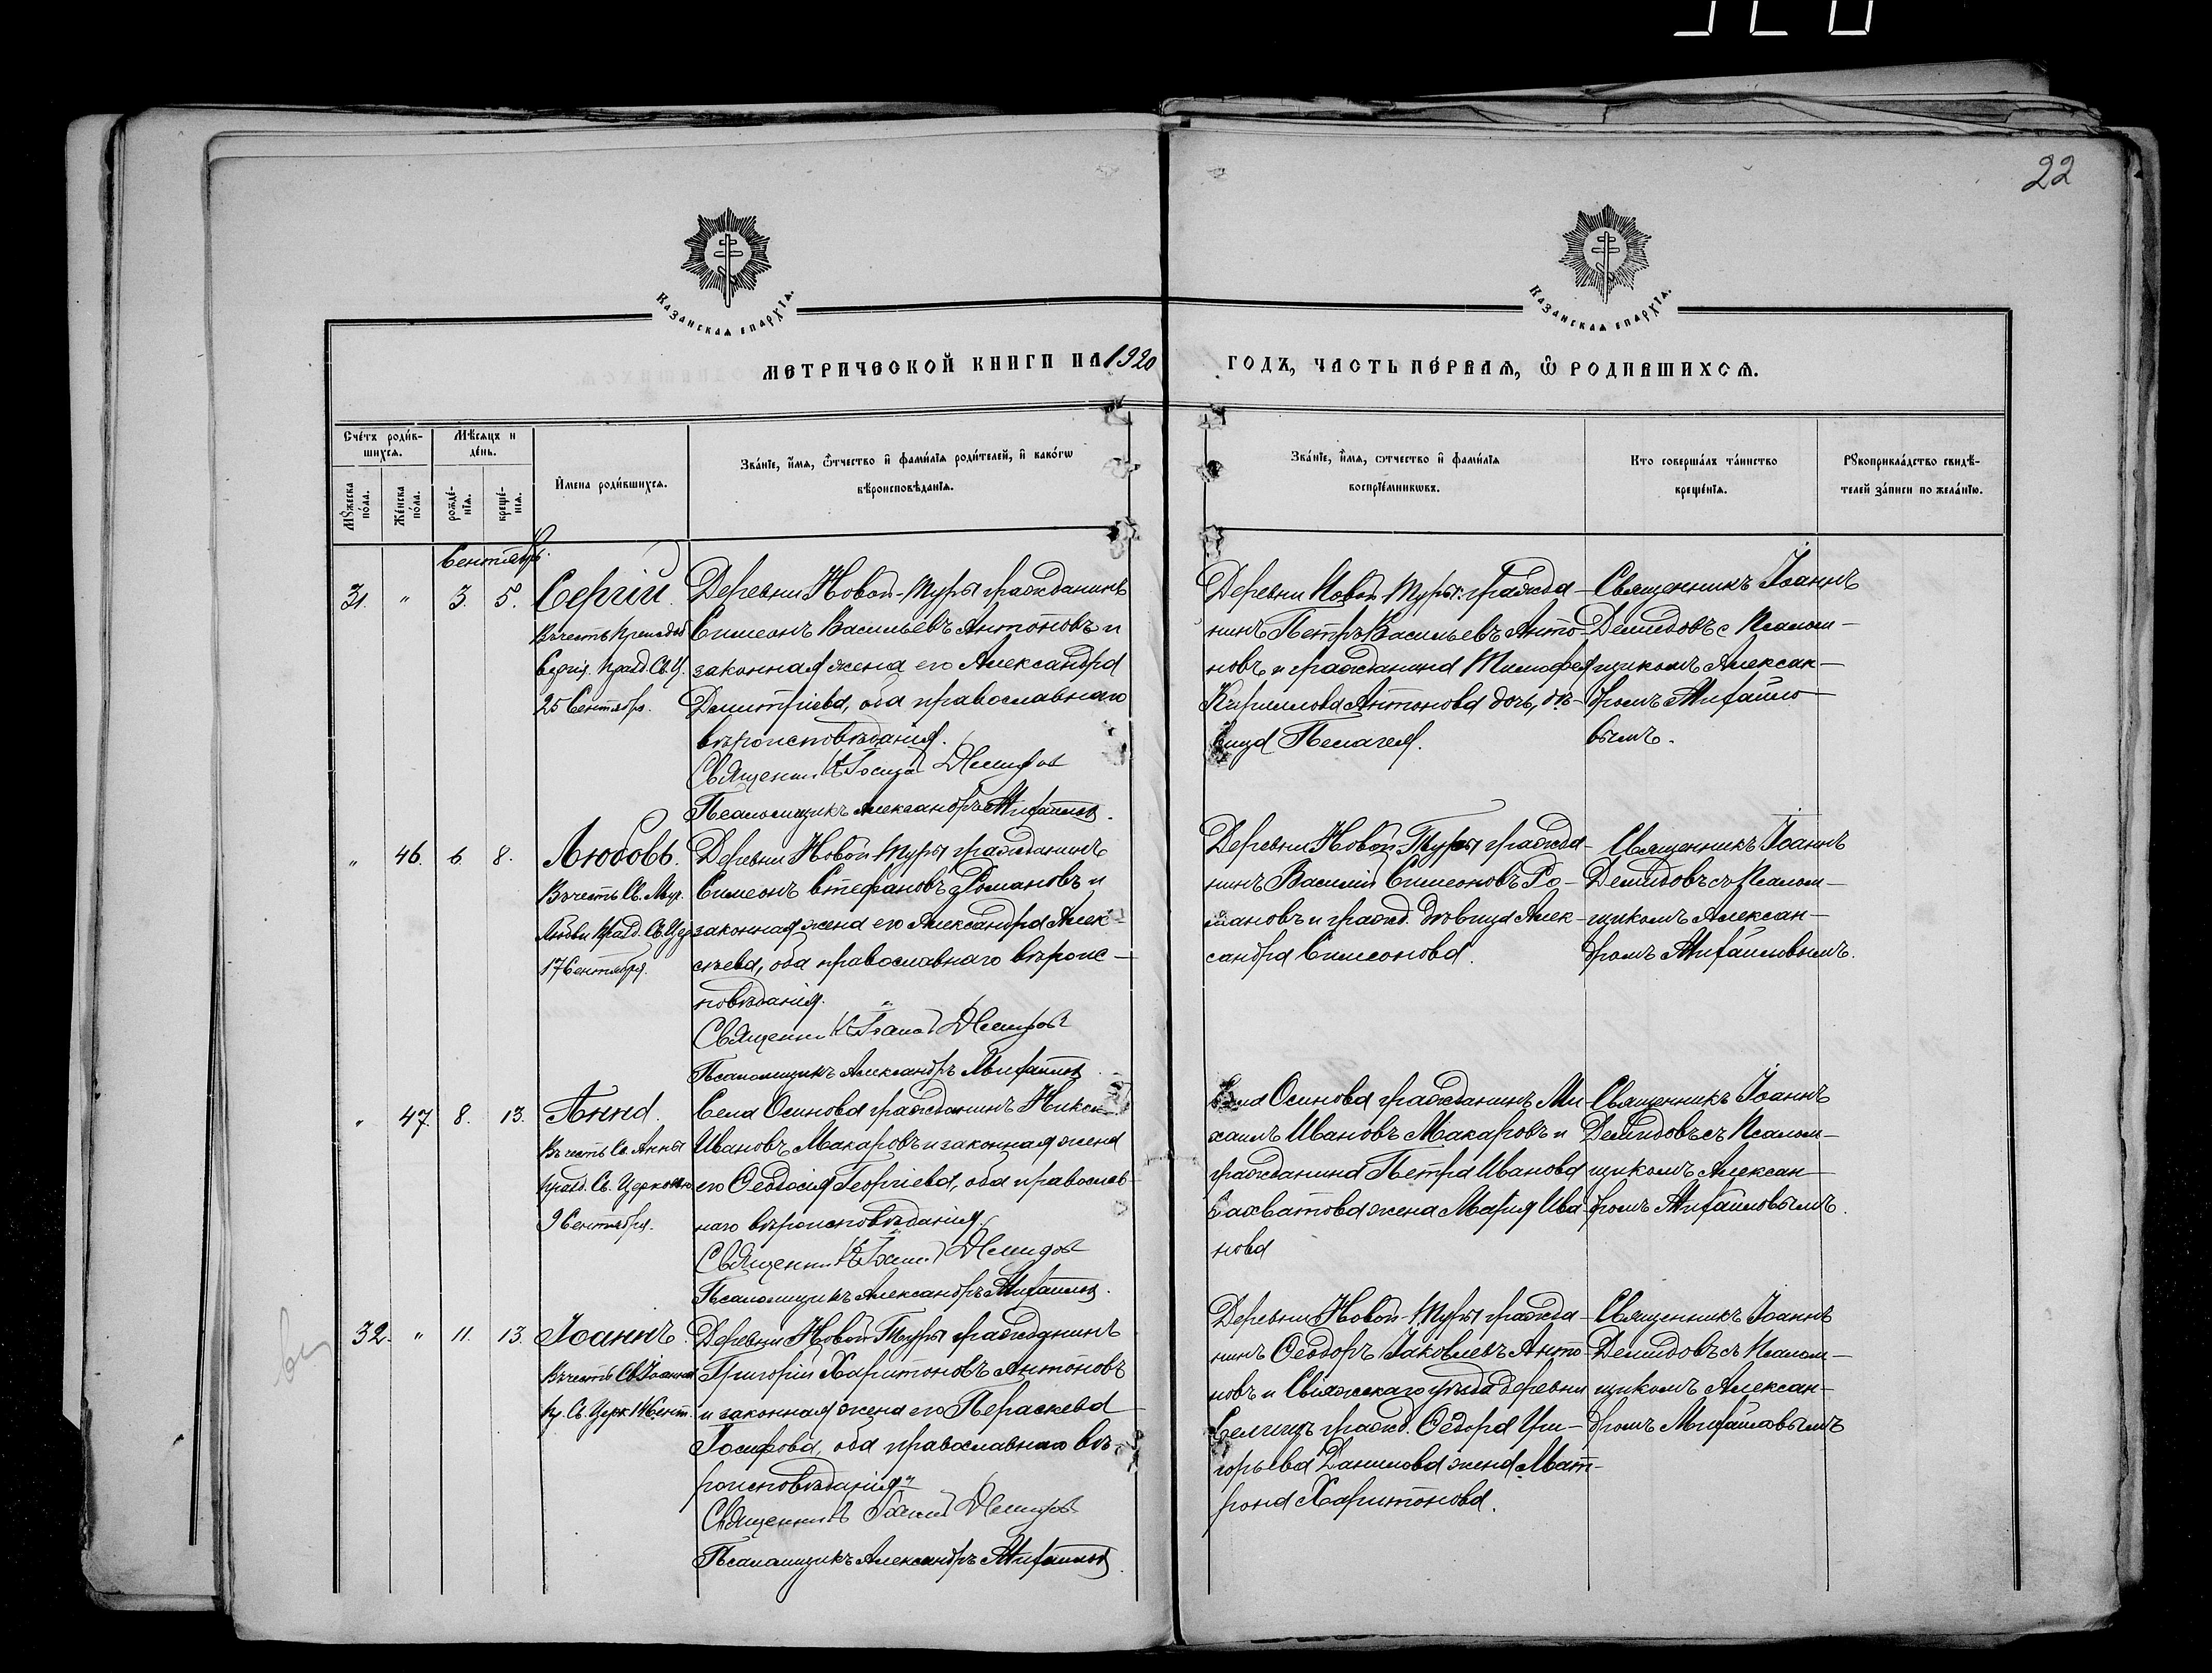 22
КАЗАНСКАѦ ЕПАРХІѦ.
КАЗАНСКАѦ ЕПАРХІѦ.
МЕТРИЧЕСКОЙ КНИГИ НА 1920 ГОДЪ, ЧАСТЬ ПЕ́РВАѦ, Ѡ РОДИВШИХСѦ.
Сче́тъ роди́в-
шихсѧ.
Мѣ́сѧцъ и
де́нь.
Мꙋ́жеска по́ла.
Же́нска по́ла.
рожде́-
нїѧ.
креще́-
нїѧ.
И҆мена роди́вшихсѧ.
Зва́нїе, и҆́мѧ, ѻ҆́тчество и҆ фами́лїѧ роди́телей, и҆ како́гѡ
вѣроисповѣ́данїѧ.
Зва́нїе, и҆́мѧ, ѻ҆́тчество и҆ фами́лїѧ
воспрїе́мникѡвъ.
Кто соверша́лъ та́инство
креще́нїѧ.
Рꙋкоприкла́дство свидѣ́-
телей за́писи по жела́нїю.
Сентябрь.
31. " 3. 5. Сергій.
Въ честь Преподоб
Сергія. Празд. Св. Ц.
25 Сентября.
Деревни Новой-Туры гражданинъ
Симеонъ Васильевъ Антоновъ и
законная жена его Александра
Димитріева, оба православнаго
вѣроисповѣданія.
Священникъ Іоаннъ Демидовъ
Псаломщикъ Александръ Михайловъ.
Деревни Новой Туры: гражда-
нинъ Петръ Васильевъ Анто-
новъ и гражданина Тимофея
Кириллова Антонова дочь, дѣ-
вица Пелагея.
Священникъ Іоаннъ
Демидовъ с Псалом-
щикомъ Алексан-
дромъ Михайло-
вымъ.
" 46. 6 8. Любовь.
Въ честь Св. Муч.
Любви Празд. Св. Цер
17 Сентября.
Деревни Новой Туры гражданинъ
Симеонъ Стефановъ Романовъ и
законная жена его Александра Алек-
сѣева, оба православнаго вѣроис-
повѣданія.
Священникъ Іоаннъ Демидовъ
Псаломщикъ Александръ Михайловъ
Деревни Новой-Туры гражда-
нинъ Василій Симеоновъ Ро-
мановъ и гражд. дѣвица Алек-
сандра Симеонова.
Священникъ Іоаннъ
Демидовъ съ Псалом-
щикомъ Алексан-
дромъ Михайловымъ.
" 47. 8. 13. Анна.
Въ честь Св. Анны
празд. Св. Церковію
9 Сентября.
Села Осинова гражданинъ
Ивановъ Макаровъ и законная жена
его Ѳеодосія Георгіева, оба православ-
наго вѣроисповѣданія.
Священникъ Іоаннъ Демидовъ
Псаломщикъ Александръ Михайловъ.
Села Осинова гражданинъ Ми-
хаилъ Ивановъ Макаровъ и
гражданина Петра Иванова
Захватова жена Марія Ива-
нова
Священникъ Іоаннъ
Демидовъ съ Псалом-
щикомъ Алексан-
дромъ Михайловымъ.
32. " 11. 13. Іоаннъ.
Въ честь Св. Іоанна
Пр. Св. Церк 14 Сент.
Деревни Новой Туры гражданинъ
Григорій Харитоновъ Антоновъ
и законная жена его Пераскева
Іосифова, оба православнаго вѣ-
роисповѣданія
Священникъ Іоаннъ Демидовъ
Псаломщикъ Александръ Михайловъ.
Деревни Новой-Туры гражда-
нинъ Ѳеодоръ Іаковлевъ Анто-
новъ и Свіяжскаго уѣзда деревни
гражд. Ѳедора Гри-
горьева Данилова жена Мат-
рона Харитонова.
Священникъ Іоаннъ
Демидовъ съ Псалом-
щикомъ Алексан-
дромъ Михайловымъ